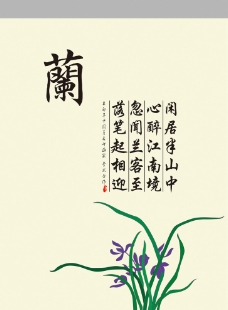 蘭
闲居半山中
心醉江南境
忽闻兰客至
落笔起相迎